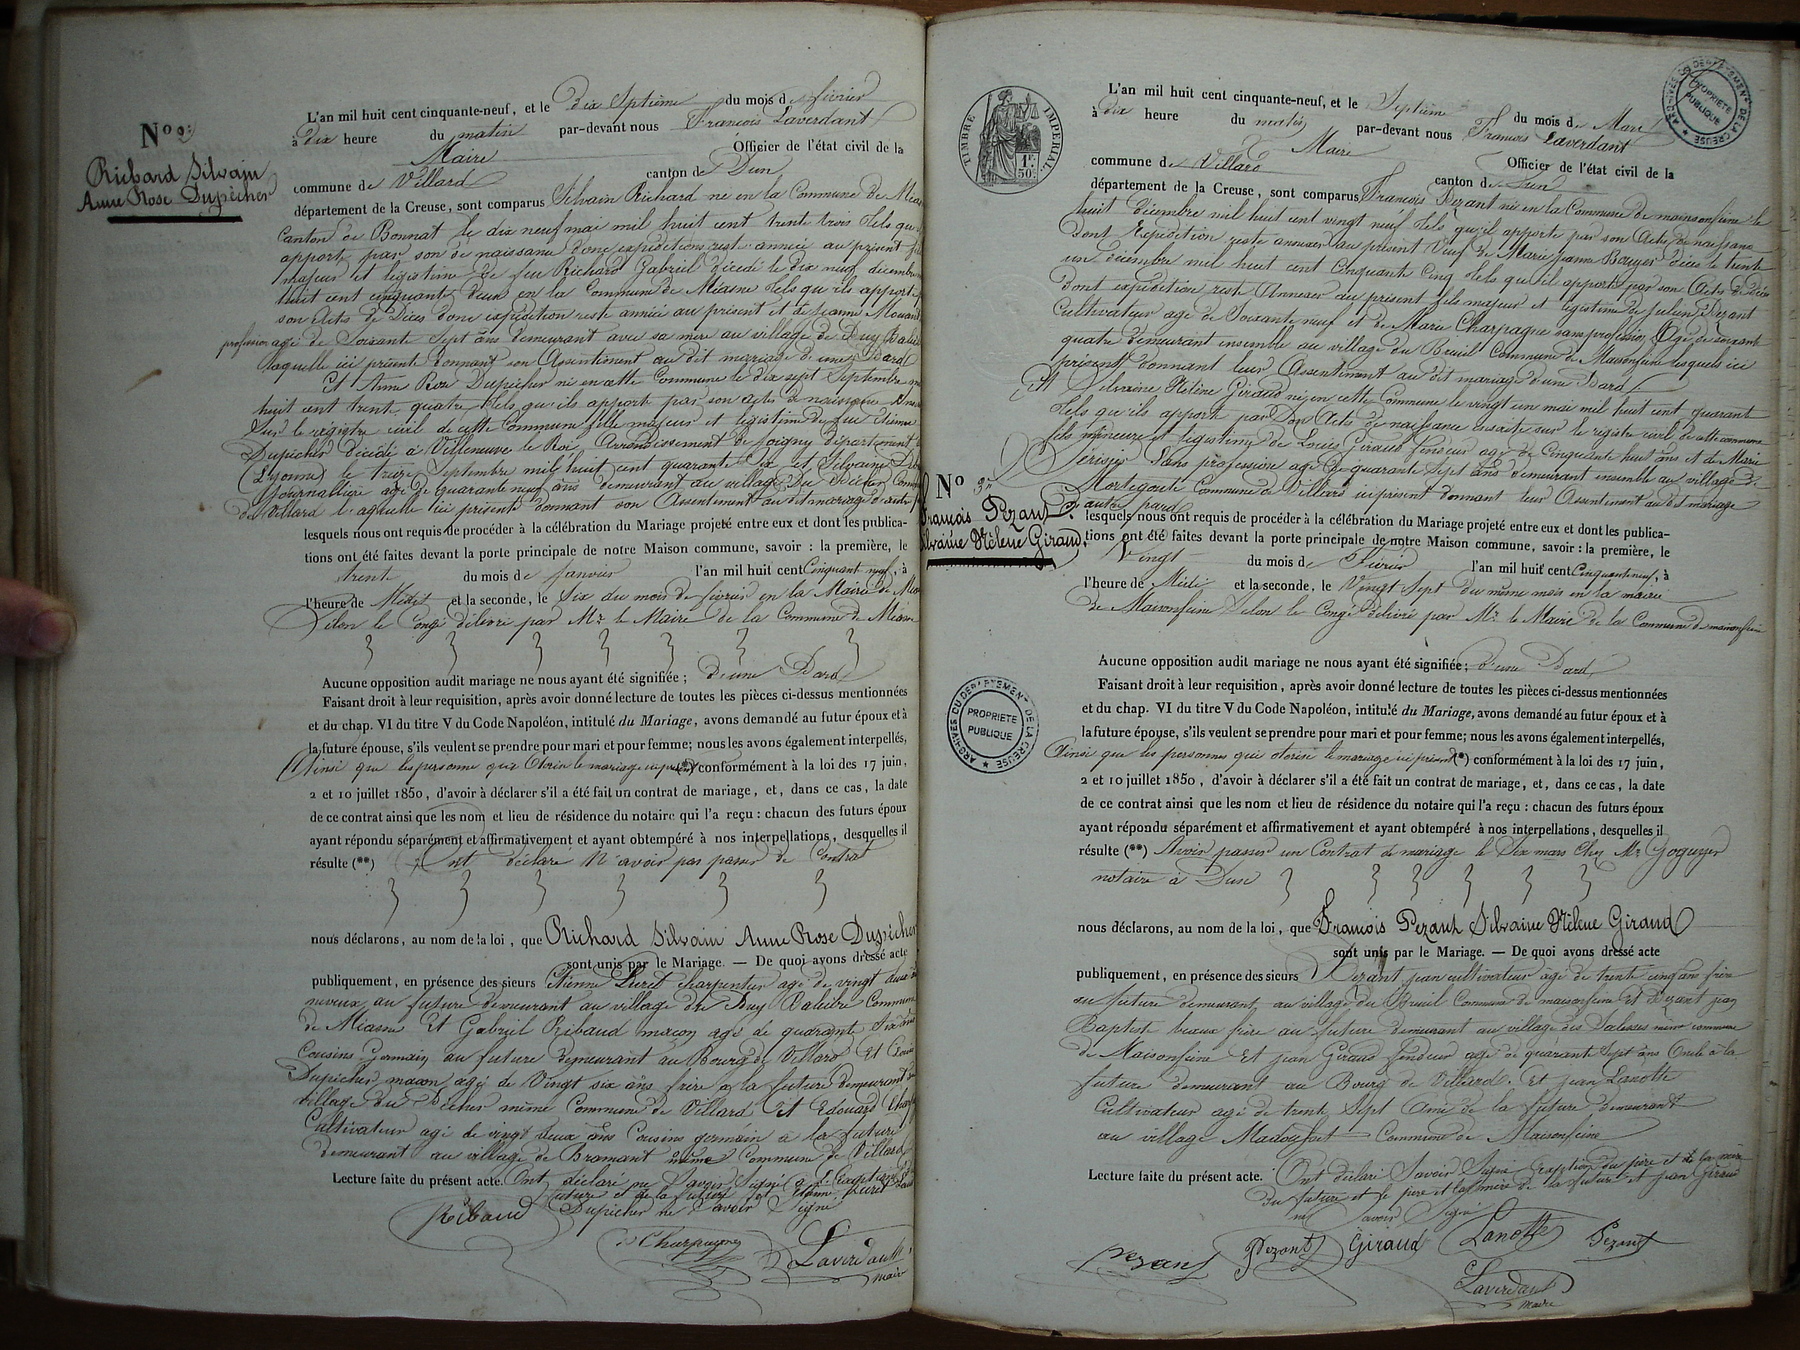 N° 2
Richard Silvain
Anne Rose Dupêcher
L'an mil huit cent cinquante-neuf, et le dix Septième du mois de février
à dix heure du matin par-devant nous François Laverdant
Maire Officier de l'état civil de la
commune de Villard canton de Dun
département de la Creuse, sont comparus Silvain Richard né en la Commune de
Canton de Bonnat le dix neuf mai mil huit cent trente trois tels qu
apport par son de naissance donc expéditions reste année au présent
majeur et légitime de feu Richard Gabriel décédé le dix neuf décembre
huit cent cinquante deux en la Commune de Méasne tels qu'ils apport
son Acts de Dices donc expédition reste année au présent et de Jeanne
profession agé de Soixante Sept ans demeurant avec sa mère au village de Puy
laquelle ici présent donnant son Assentiment au dit mariage d'une Pard
Et Anne Rose Dupêcher né en cette Commune le dix sept Septembre
huit cent trent quatre tels qu'ils apport par son acts de naissance
Sur le régistre civil de cette Commune fille majeur et légistime de feu Etienne
Dupêcher décédé a Villeneuve le Roi Arrondissement de Joigny département
(Lyonne) le treize Septembre mil huit cent quarante Six et Silvaine
Journallière agé de quarante neuf ans demeurant au village du Pêcher
de Villard laquelle ici présente donnant son Assentiment au dit mariage d'autre
lesquels nous ont requis de procéder à la célébration du Mariage projeté entre eux et dont les publica-
tions ont été faites devant la porte principale de notre Maison commune, savoir : la première, le
trente du mois de Janvier l'an mil huit cent Cinquant neuf, à
l'heure de Midi et la seconde, le Six du mois de février en la Mairie de
Selon le Congé délivré par Mr le Maire de la Commune de Méasne
Aucune opposition audit mariage ne nous ayant été signifiée ; d'une Pard
Faisant droit à leur requisition, après avoir donné lecture de toutes les pièces ci-dessus mentionnées
et du chap. VI du titre V du Code Napoléon, intitulé du Mariage, avons demandé au futur époux et à
la future épouse, s'ils veulent se prendre pour mari et pour femme; nous les avons également interpellés,
Ainsi que les personne qui Otorise le mariage ici présent (*) conformément à la loi des 17 juin,
2 et 10 juillet 1850, d'avoir à déclarer s'il a été fait un contrat de mariage, et, dans ce cas, la date
de ce contrat ainsi que les nom et lieu de résidence du notaire qui l'a reçu : chacun des futurs époux
ayant répondu séparément et affirmativement et ayant obtempéré à nos interpellations, desquelles il
résulte (**) Ont déclaré N'avoir pas passer de Contrat
nous déclarons, au nom de la loi, que Richard Silvain Anne Rose Dupêcher
sont unis par le Mariage. — De quoi avons dressé acte
publiquement, en présence des sieurs Etienne Luret charpentier agé de vingt deux
neveux au future demeurant au village du Puy Commune
de Méasne Et Gabriel Ribaud maçon agé de quarante Six
Cousins Germain au future demeurant au Bourg de Villard Et
Dupêcher maçon agé de Vingt six ans frère a la future demeurant
village du Pêcher même Commune de Villard Et Edouard
Cultivateur agé de vingt deux ans Cousins germain à la future
demeurant au village de Bramant même Commune de Villard
Lecture faite du présent acte. Ont déclaré Savoir Signé a L'Exception
future et de la future Et Etienne Luret
Dupêcher ne Savoir Signé
Ribaud
Charpagne
Laverdant
maire
TIMBRE IMPERIAL
1F 50C
ARCHIVES DU DEPARTEMENT DE LA CREUSE
PROPRIETE PUBLIQUE
N° 3
François Pezant
Silvaine Hélène Giraud
L'an mil huit cent cinquante-neuf, et le Septième du mois de Mars
à dix heure du matin par-devant nous François Laverdant
Maire Officier de l'état civil de la
commune de Villard canton de Dun
département de la Creuse, sont comparus François Pezant né en la Commune de maisonfeine le
huit décembre mil huit cent vingt neuf tels qu'il apporte par son Acte de naissance
dont Expédition reste annexer au présent Veuf de Marie Jeanne Bouyer dices le trente
un décembre mil huit cent Cinquante Cinq tels qu'il apporte par son Acts de dices
dont expédition reste Annexer au présent fils majeur et légistime de Julien Pezant
Cultivateur agé de Soixante neuf et de Marie Charpagne sans profession Agé de soixante
quatre demeurant ensemble au village du Breuil Commune de Maisonfeine lesquels ici
présent donnant leur Assentiment au dit mariage d'une Pard
Et Silvaine Hélène Giraud né en cette Commune le vingt un mai mil huit cent quarant
tels qu'ils apport par Son Acts de naissance inscrite sur le registre civil de cette commune
fille mineure et légistime de Louis Giraud fendeur agé de Cinquante huit ans et de Marie
Sans profession agé de quarante Sept ans demeurant ensemble au village de
Mortegoute Commune de Villard ici présent donnant leur Assentiment au dit mariage
d'autre pard
lesquels nous ont requis de procéder à la célébration du Mariage projeté entre eux et dont les publica-
tions ont été faites devant la porte principale de notre Maison commune, savoir : la première, le
Vingt du mois de Février l'an mil huit cent Cinquante neuf, à
l'heure de Midi et la seconde, le Vingt Sept du même mois en la mairie
de Maisonfeine Selon le Congé délivré par Mr le Maire de la Commune de maisonfeine
Aucune opposition audit mariage ne nous ayant été signifiée ; d'une Pard
Faisant droit à leur requisition, après avoir donné lecture de toutes les pièces ci-dessus mentionnées
et du chap. VI du titre V du Code Napoléon, intitulé du Mariage, avons demandé au futur époux et à
la future épouse, s'ils veulent se prendre pour mari et pour femme; nous les avons également interpellés,
Ainsi que les personnes qui otorise le mariage ici présent (*) conformément à la loi des 17 juin,
2 et 10 juillet 1850, d'avoir à déclarer s'il a été fait un contrat de mariage, et, dans ce cas, la date
de ce contrat ainsi que les nom et lieu de résidence du notaire qui l'a reçu : chacun des futurs époux
ayant répondu séparément et affirmativement et ayant obtempéré à nos interpellations, desquelles il
résulte (**) Avoir passer un Contrat de mariage le Six mars Chez Mr Goguyer
notaire à Dun
nous déclarons, au nom de la loi, que François Pezant Silvaine Hélène Giraud
sont unis par le Mariage. — De quoi avons dressé acte
publiquement, en présence des sieurs Pezant jean cultivateur agé de trente cinq ans frère
au future demeurant au village du Breuil Commune de maisonfeine Et Pezant jean
Baptiste beaux frère au future demeurant au village des Salesses même commune
de Maisonfeine Et jean Giraud fendeur agé de quarante Sept ans Oncle à la
future demeurant au Bourg de Villard. Et jean Lanotte
Cultivateur agé de trente Sept Ami de la future demeurant
au village Commune de Maisonfeine
Lecture faite du présent acte. Ont déclaré Savoir Signé Exception du père et de la mère
du future et le père et la mère de la future et jean Giraud
ne Savoir Signé
Pezant
Pezant
Giraud
Lanotte
Pezant
Laverdant
maire
ARCHIVES DU DEPARTEMENT DE LA CREUSE
PROPRIETE PUBLIQUE